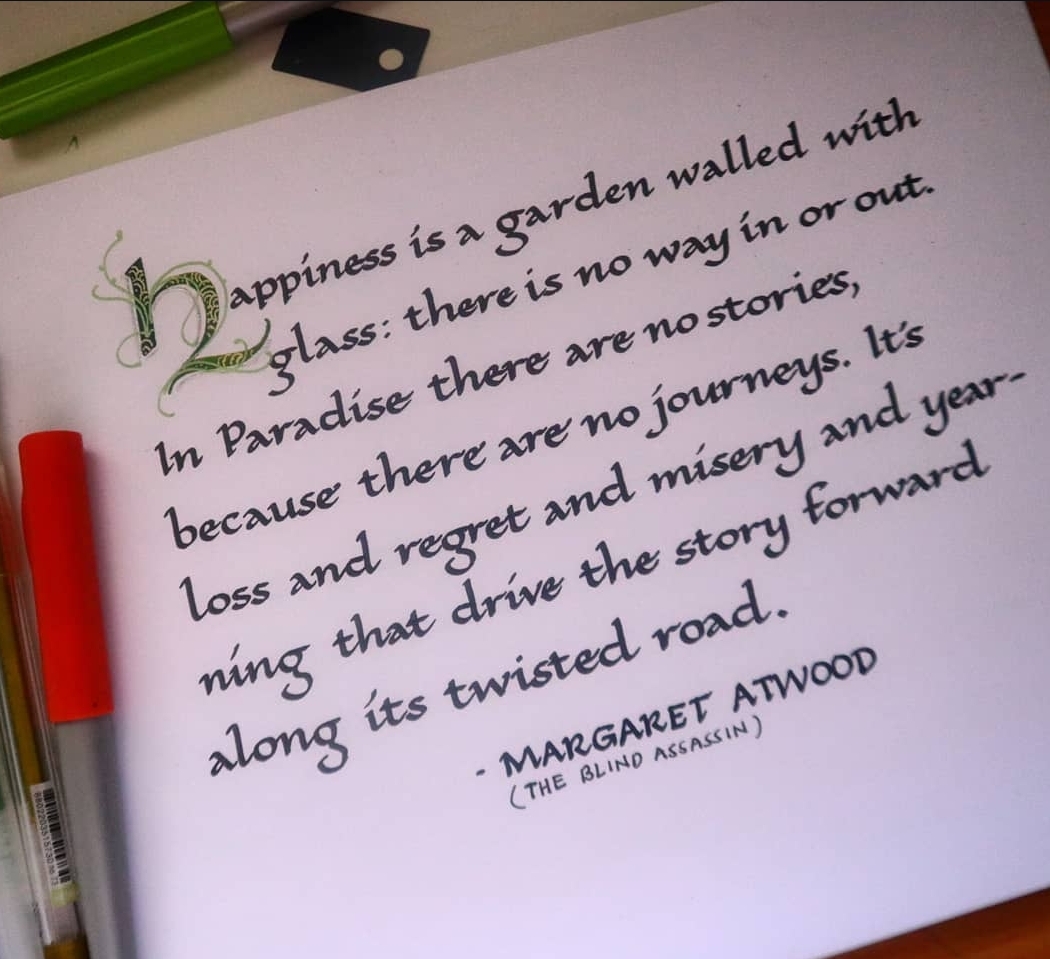 happiness is a garden walled with
glass: there is no way in or out.
In Paradise there are no stories,
because there are no journeys. It's
loss and regret and misery and year-
ning that drive the story forward
along its twisted road.
- MARGARET ATWOOD
(THE BLIND ASSASSIN)